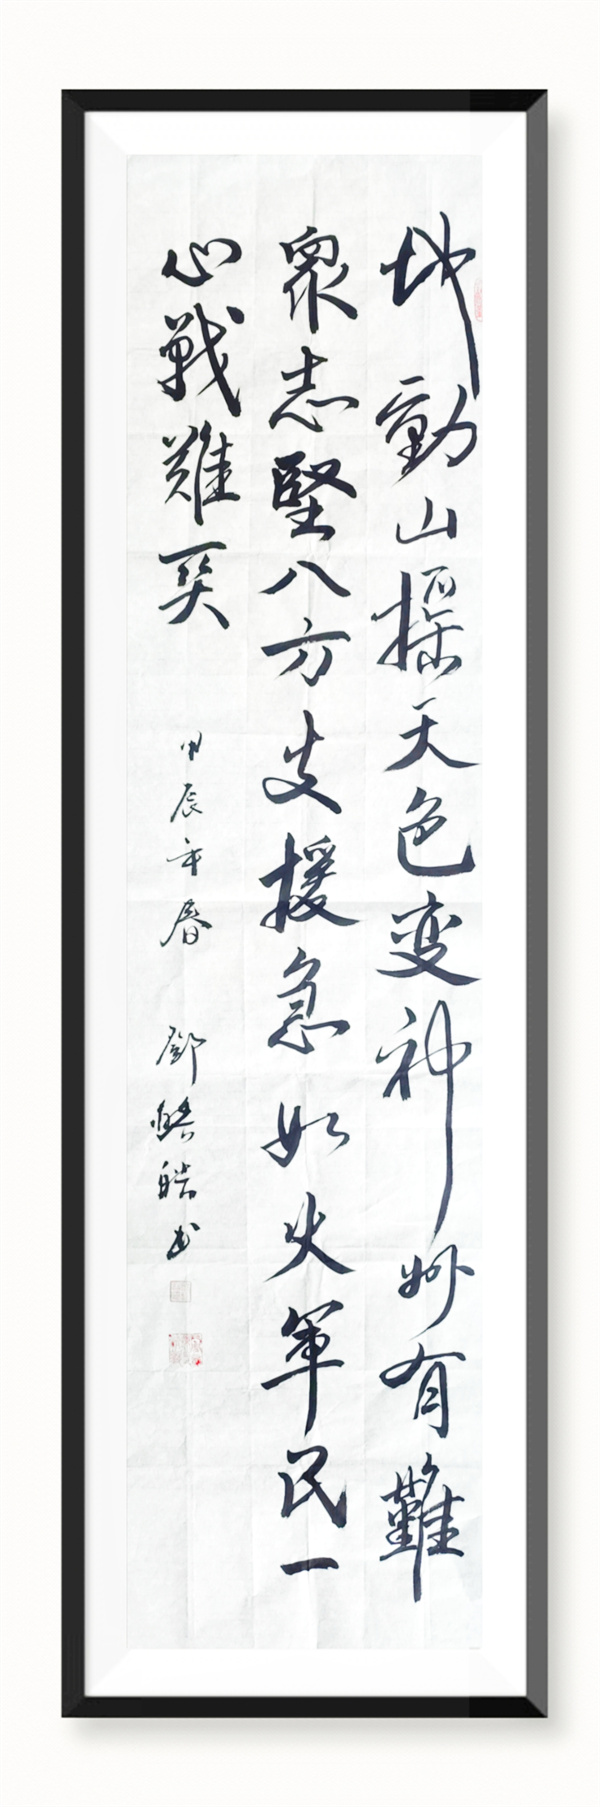 地動山摇天色变神州有難
眾志堅八方支援急如火軍民一
心戰難関
甲辰年春 鄧皓书